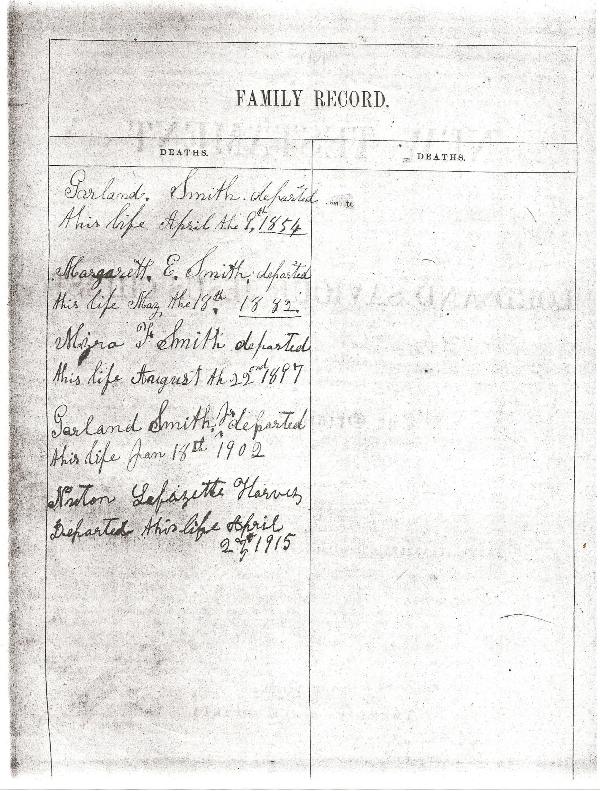 FAMILY RECORD.
DEATHS.
Garland. Smith. departed
this life April the 8th, 1854
Margarett. E. Smith. departed
this life May, the 18th 1882.
F Smith departed
this life August th 22nd 1897
Garland Smith, Jr departed
this life Jan 18th 1902
Nuton Lafayette Harvey
Departed this life April
27th 1915
DEATHS.